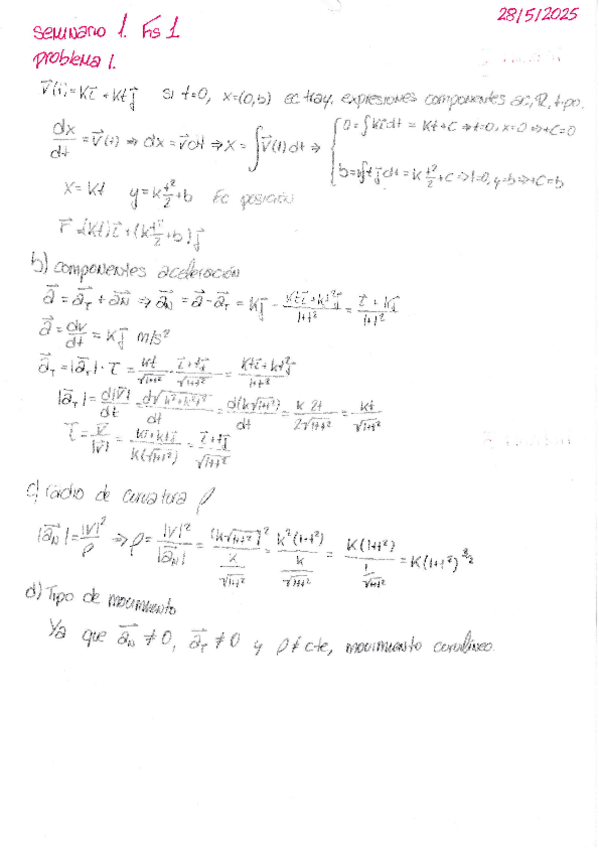 28/5/2025
seminario 1. Fis 1
Problema 1.
V⃗(t)=Kī+Ktj̄ si t=0, x=(0,b) ec tray. expresiones componentes ac, R, tipo.
dx/dt = V⃗(t) ⇒ dx = v⃗dt ⇒ x = ∫V⃗(t)dt ⇒ { 0=∫Kīdt = Kt+C ⇒ t=0, x=0 ⇒ C=0
b=∫Ktj̄dt = K t²/2 + C ⇒ t=0, y=b ⇒ C=b
x = Kt y = K t²/2 + b Ec posición
r⃗ = (Kt)ī + (K t²/2 + b)j̄
b) componentes aceleración
a⃗ = a⃗T + a⃗N ⇒ a⃗N = a⃗ - a⃗T = Kj̄ - (Ktī+Kt²j̄)/(1+t²) = (ī + Kj̄)/(1+t²)
a⃗ = dv/dt = Kj̄ m/s²
a⃗T = |a⃗T|·τ = Kt/√(1+t²) · (ī+tj̄)/√(1+t²) = (Ktī+Kt²j̄)/(1+t²)
|a⃗T| = d|V⃗|/dt = d√(K²+K²t²)/dt = d(K√(1+t²))/dt = K 2t/(2√(1+t²)) = Kt/√(1+t²)
τ = V⃗/|V⃗| = (Kī+Ktj̄)/(K(√(1+t²))) = (ī+tj̄)/√(1+t²)
c) radio de curvatura ρ
|a⃗N| = |V|²/ρ ⇒ ρ = |V|²/|a⃗N| = (K√(1+t²))²/(K/√(1+t²)) = K²(1+t²)/(K/√(1+t²)) = K(1+t²)/(1/√(1+t²)) = K(1+t²)^3/2
d) Tipo de movimiento
Ya que a⃗N ≠ 0, a⃗T ≠ 0 y ρ ≠ cte, movimiento curvilíneo.